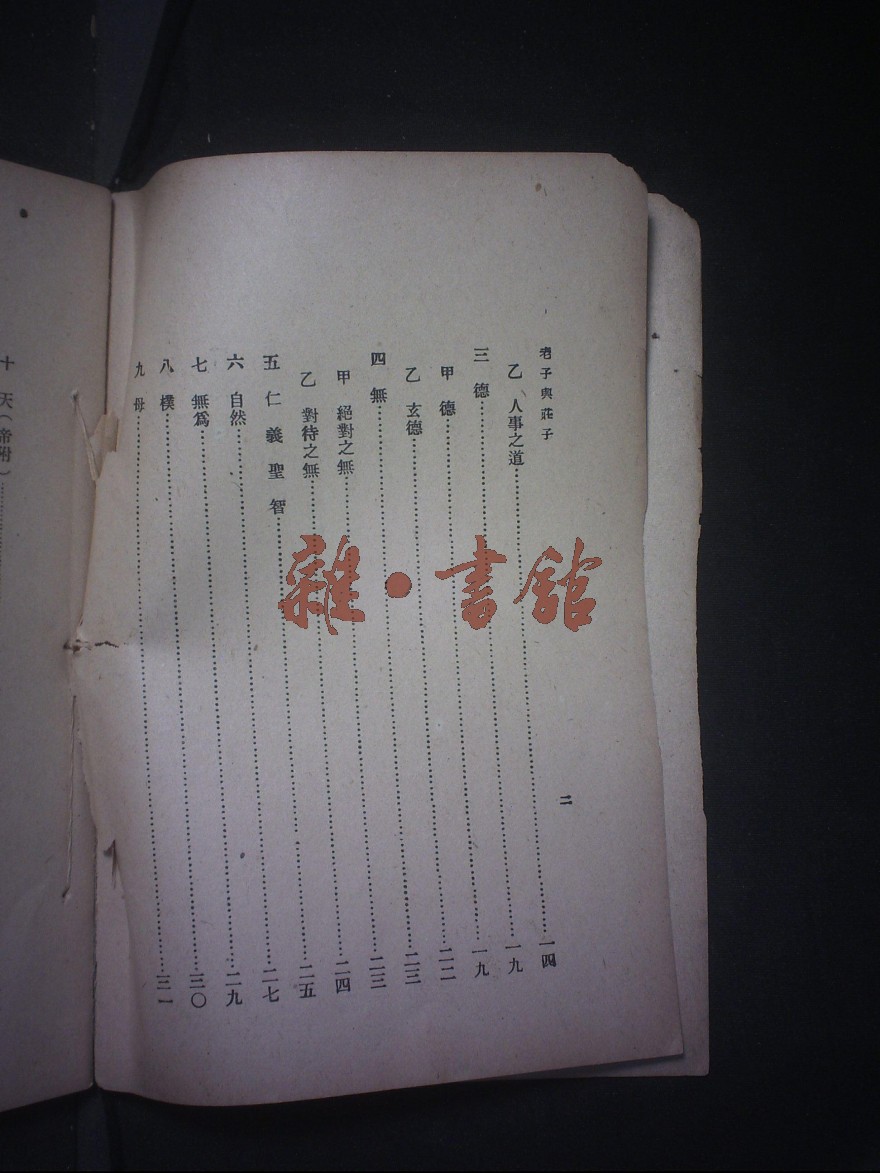 老子與莊子
二
乙 人事之道……一四
三 德……一九
甲 德……一九
乙 玄德……二二
四 無……二三
甲 絕對之無……二三
乙 對待之無……二四
五 仁義聖智……二五
六 自然……二七
七 無爲……二九
八 樸……三〇
九 母……三一
十 天（帝附）……
雜·書館